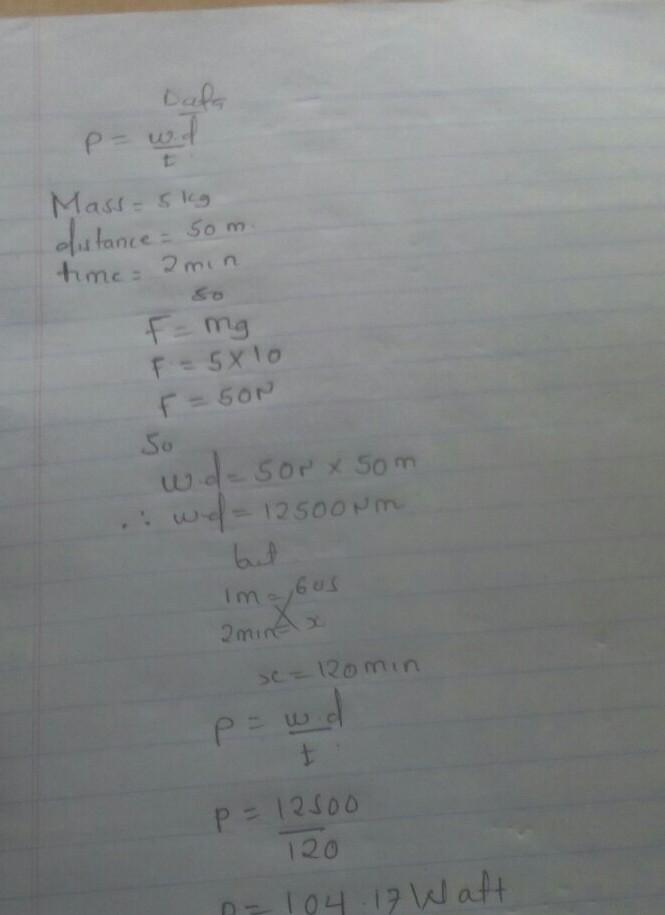 Data
P = w.d
t
Mass = 5 kg
distance = 50 m.
time = 2 min
so
F = mg
F = 5 X 10
F = 50N
So
w.d = 50N x 50 m
∴ w.d = 12500 Nm
but
1m = 60s
2min = x
x = 120 min
P = w.d
t
P = 12500
120
P = 104.17 Watt